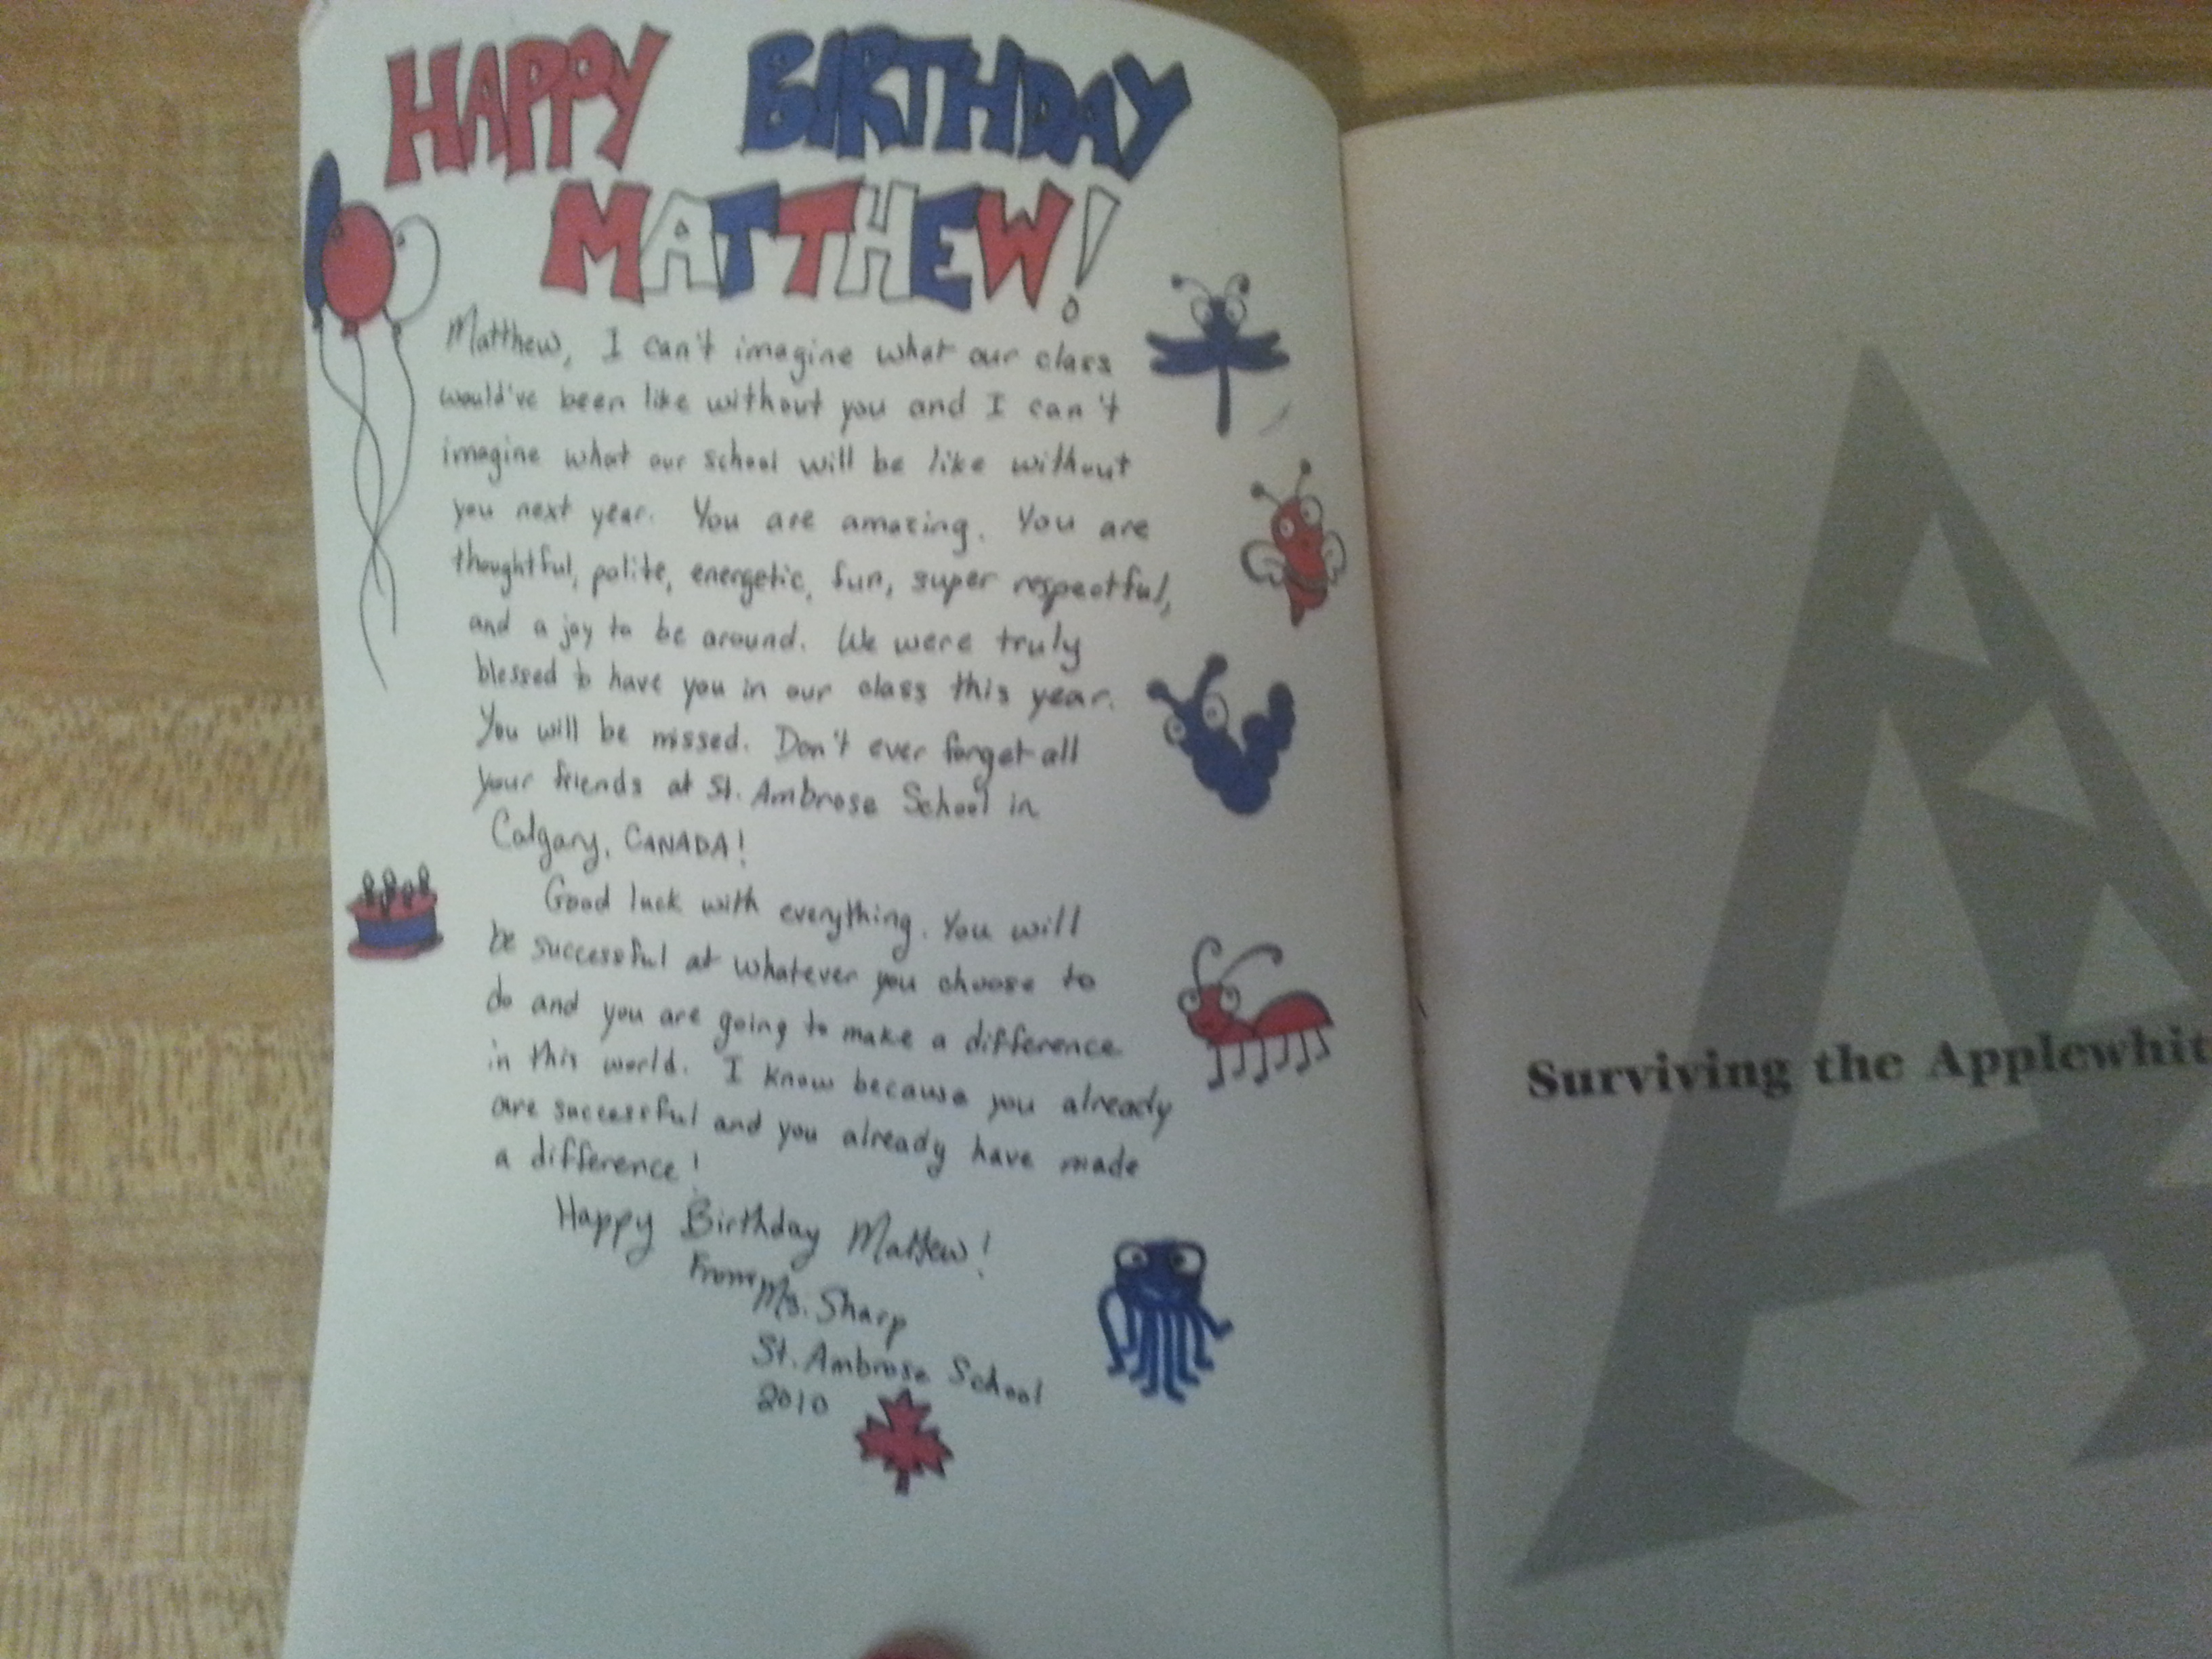 HAPPY BIRTHDAY
MATTHEW!
Matthew, I can't imagine what our class
would've been like without you and I can't
imagine what our school will be like without
you next year. You are amazing. You are
thoughtful, polite, energetic, fun, super respectful,
and a joy to be around. We were truly
blessed to have you in our class this year.
You will be missed. Don't ever forget all
your friends at St. Ambrose School in
Calgary, CANADA!
Good luck with everything. You will
be successful at whatever you choose to
do and you are going to make a difference
in this world. I know because you already
are successful and you already have made
a difference!
Happy Birthday Matthew!
From Ms. Sharp
St. Ambrose School
2010
Surviving the Applewhit